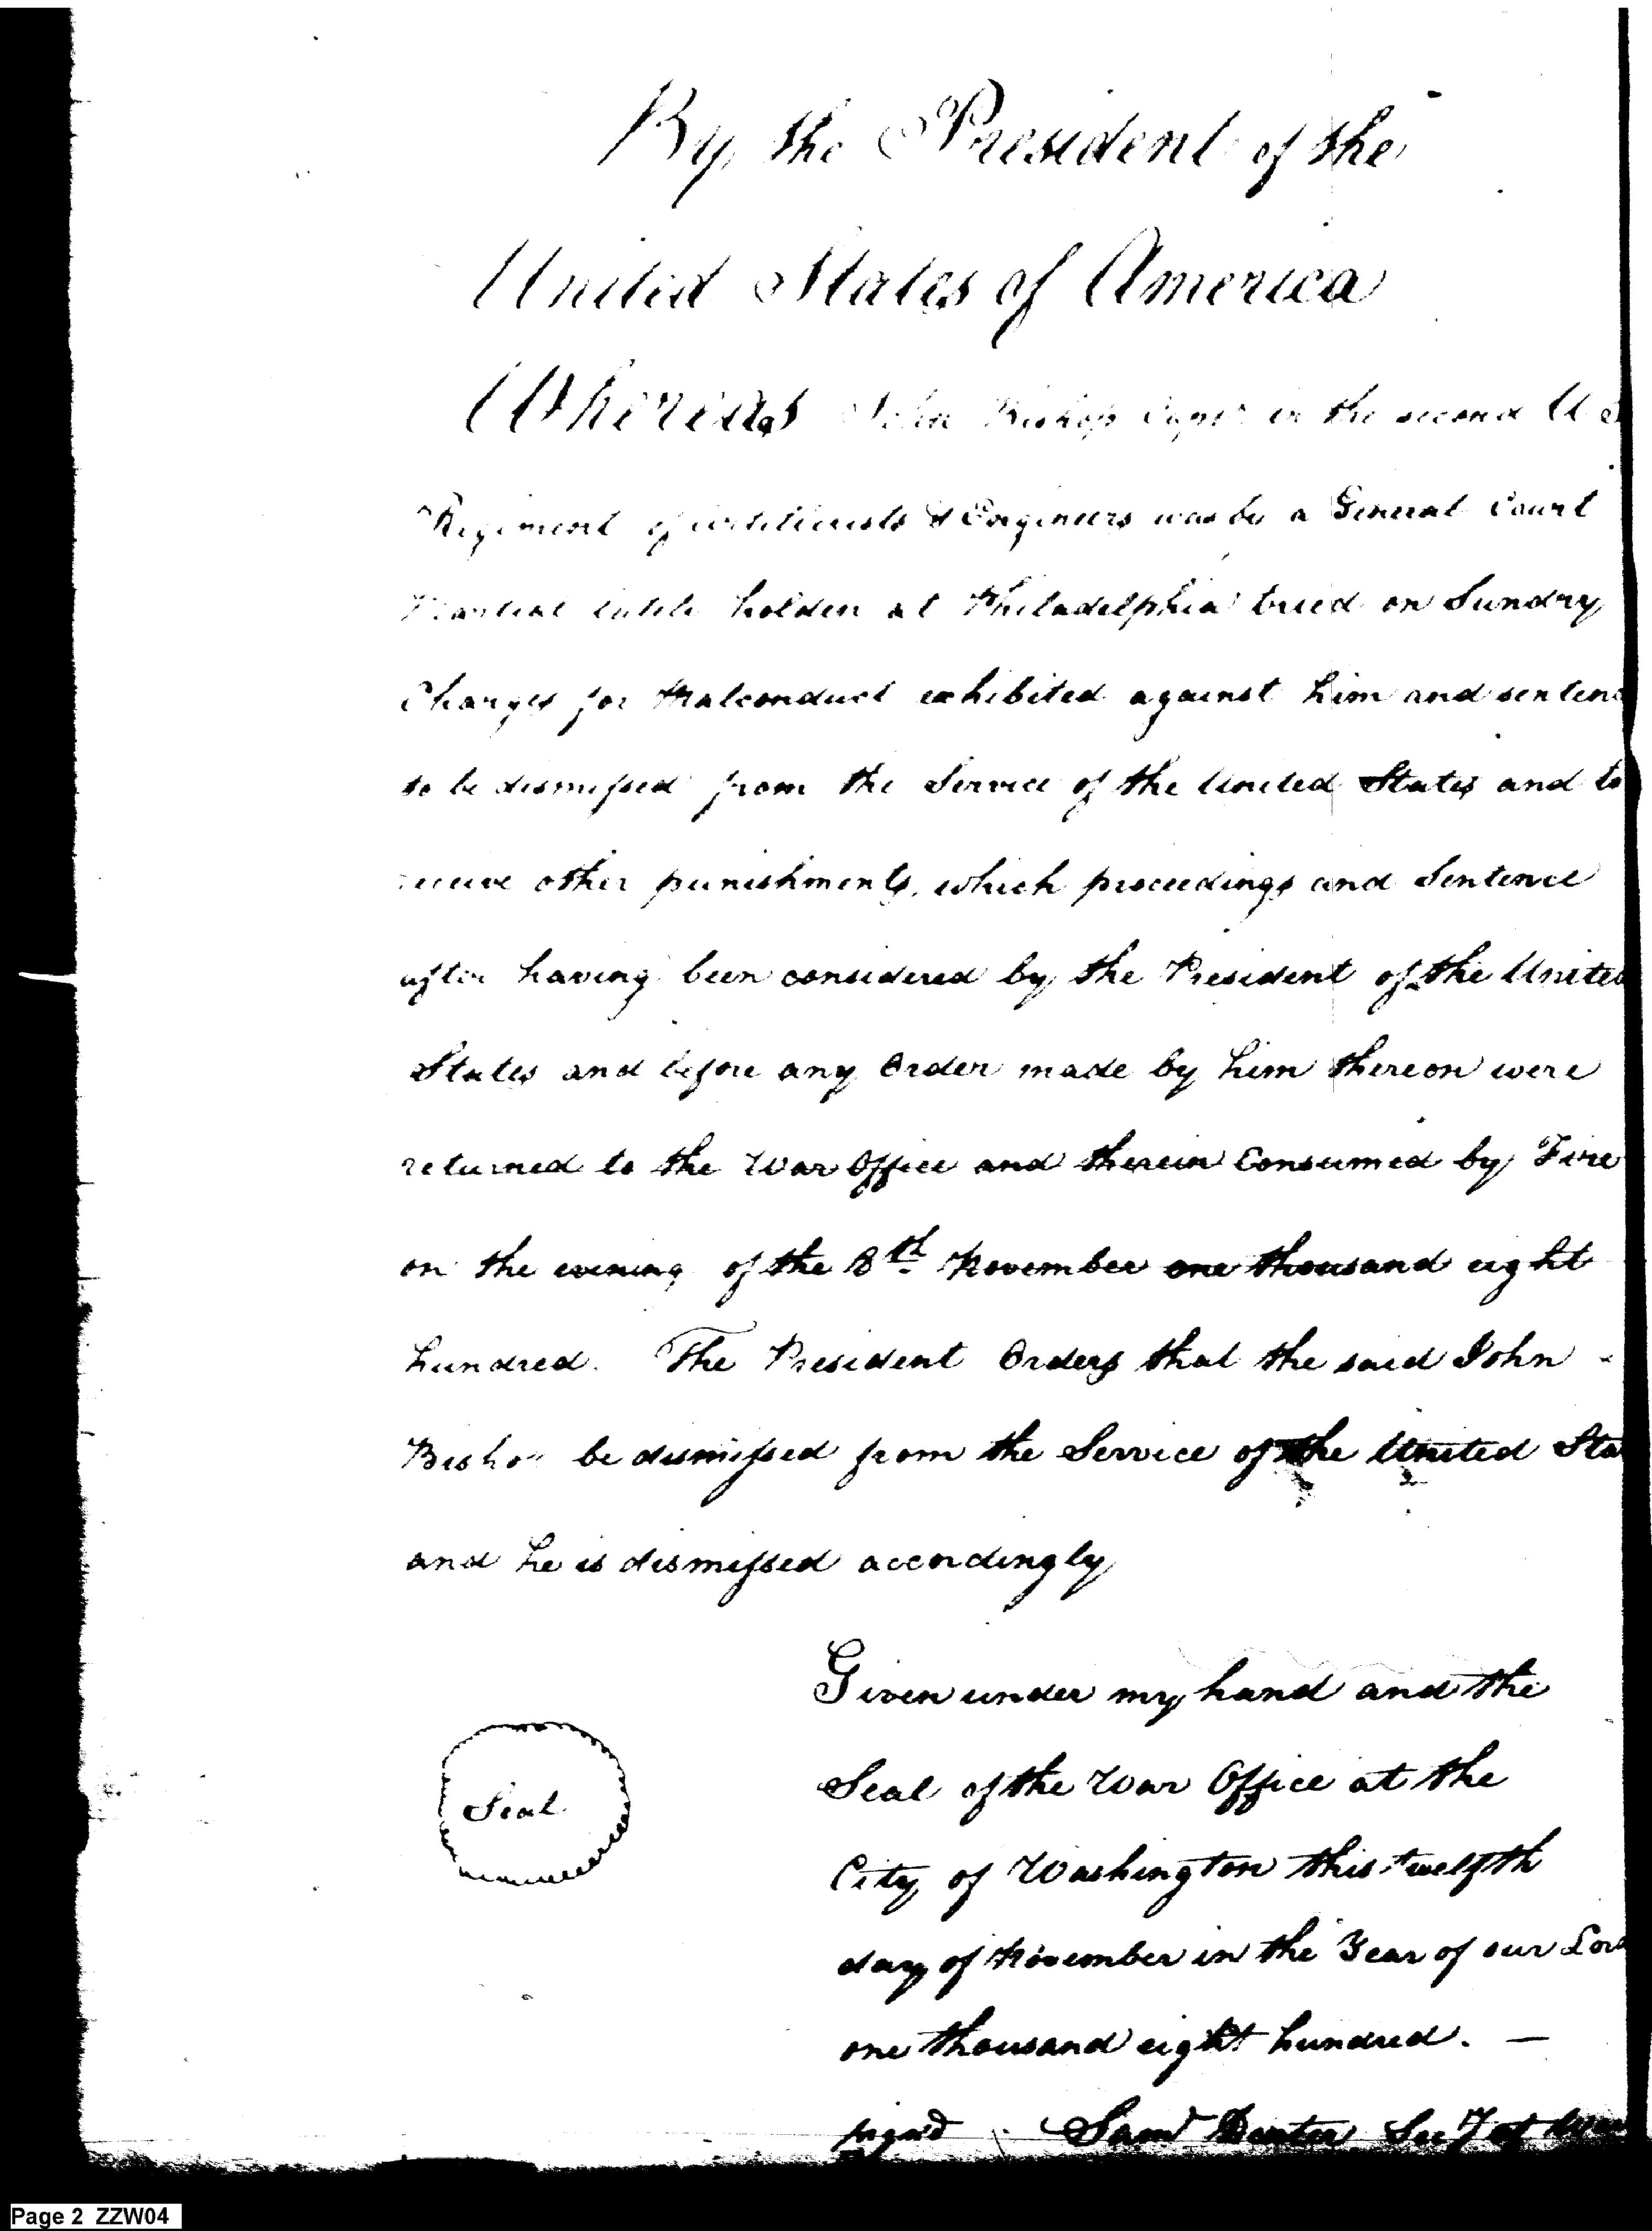 By the President of the
United States of America
Whereas John Bishop Capt in the second U S
Regiment of Artillerists & Engineers was by a General Court
Martial lately holden at Philadelphia tried on Sundry
Charges for Malconduct exhibited against him and sentenc
to be dismissed from the Service of the United States and to
receive other punishments, which proceedings and Sentence
after having been considered by the President of the United
States and before any Order made by him thereon were
returned to the War Office and therein Consumed by Fire
on the evening of the 8th November one thousand eight
hundred. The President Orders that the said John
Bishop be dismissed from the Service of the United Sta
and he is dismissed accordingly
Given under my hand and the
Seal of the War Office at the
Seal
City of Washington this twelfth
day of November in the Year of our Lord
one thousand eight hundred. —
signd Saml Dexter Secy of War
Page 2 ZZW04